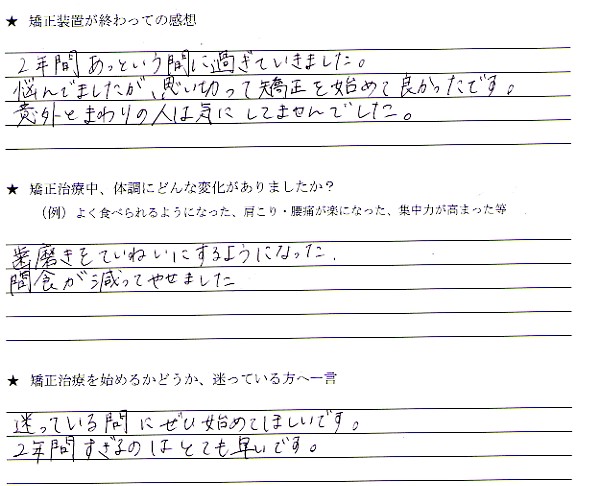 ★ 矯正装置が終わっての感想
2年間あっという間に過ぎていきました。
悩んでましたが、思い切って矯正を始めて良かったです。
意外とまわりの人は気にしてませんでした。
★ 矯正治療中、体調にどんな変化がありましたか？
（例）よく食べられるようになった、肩こり・腰痛が楽になった、集中力が高まった等
歯磨きをていねいにするようになった.
間食が減ってやせました
★ 矯正治療を始めるかどうか、迷っている方へ一言
迷っている間にぜひ始めてほしいです。
2年間すぎるのはとても早いです。